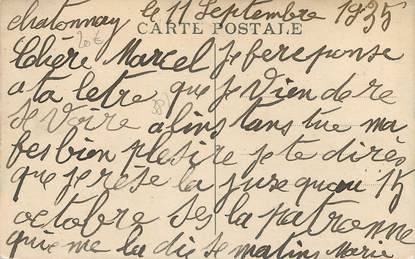 chatonnay le 11 Septembre 1935
20€
CARTE POSTALE
Chere Marcel je fereponse
a ta letre que je vien de re
se voire a lins tans tue ma
fes bien plesire je te dirès
que je rese la jusquau 15
octobre ses la patronne
qui me la di se matins Marie